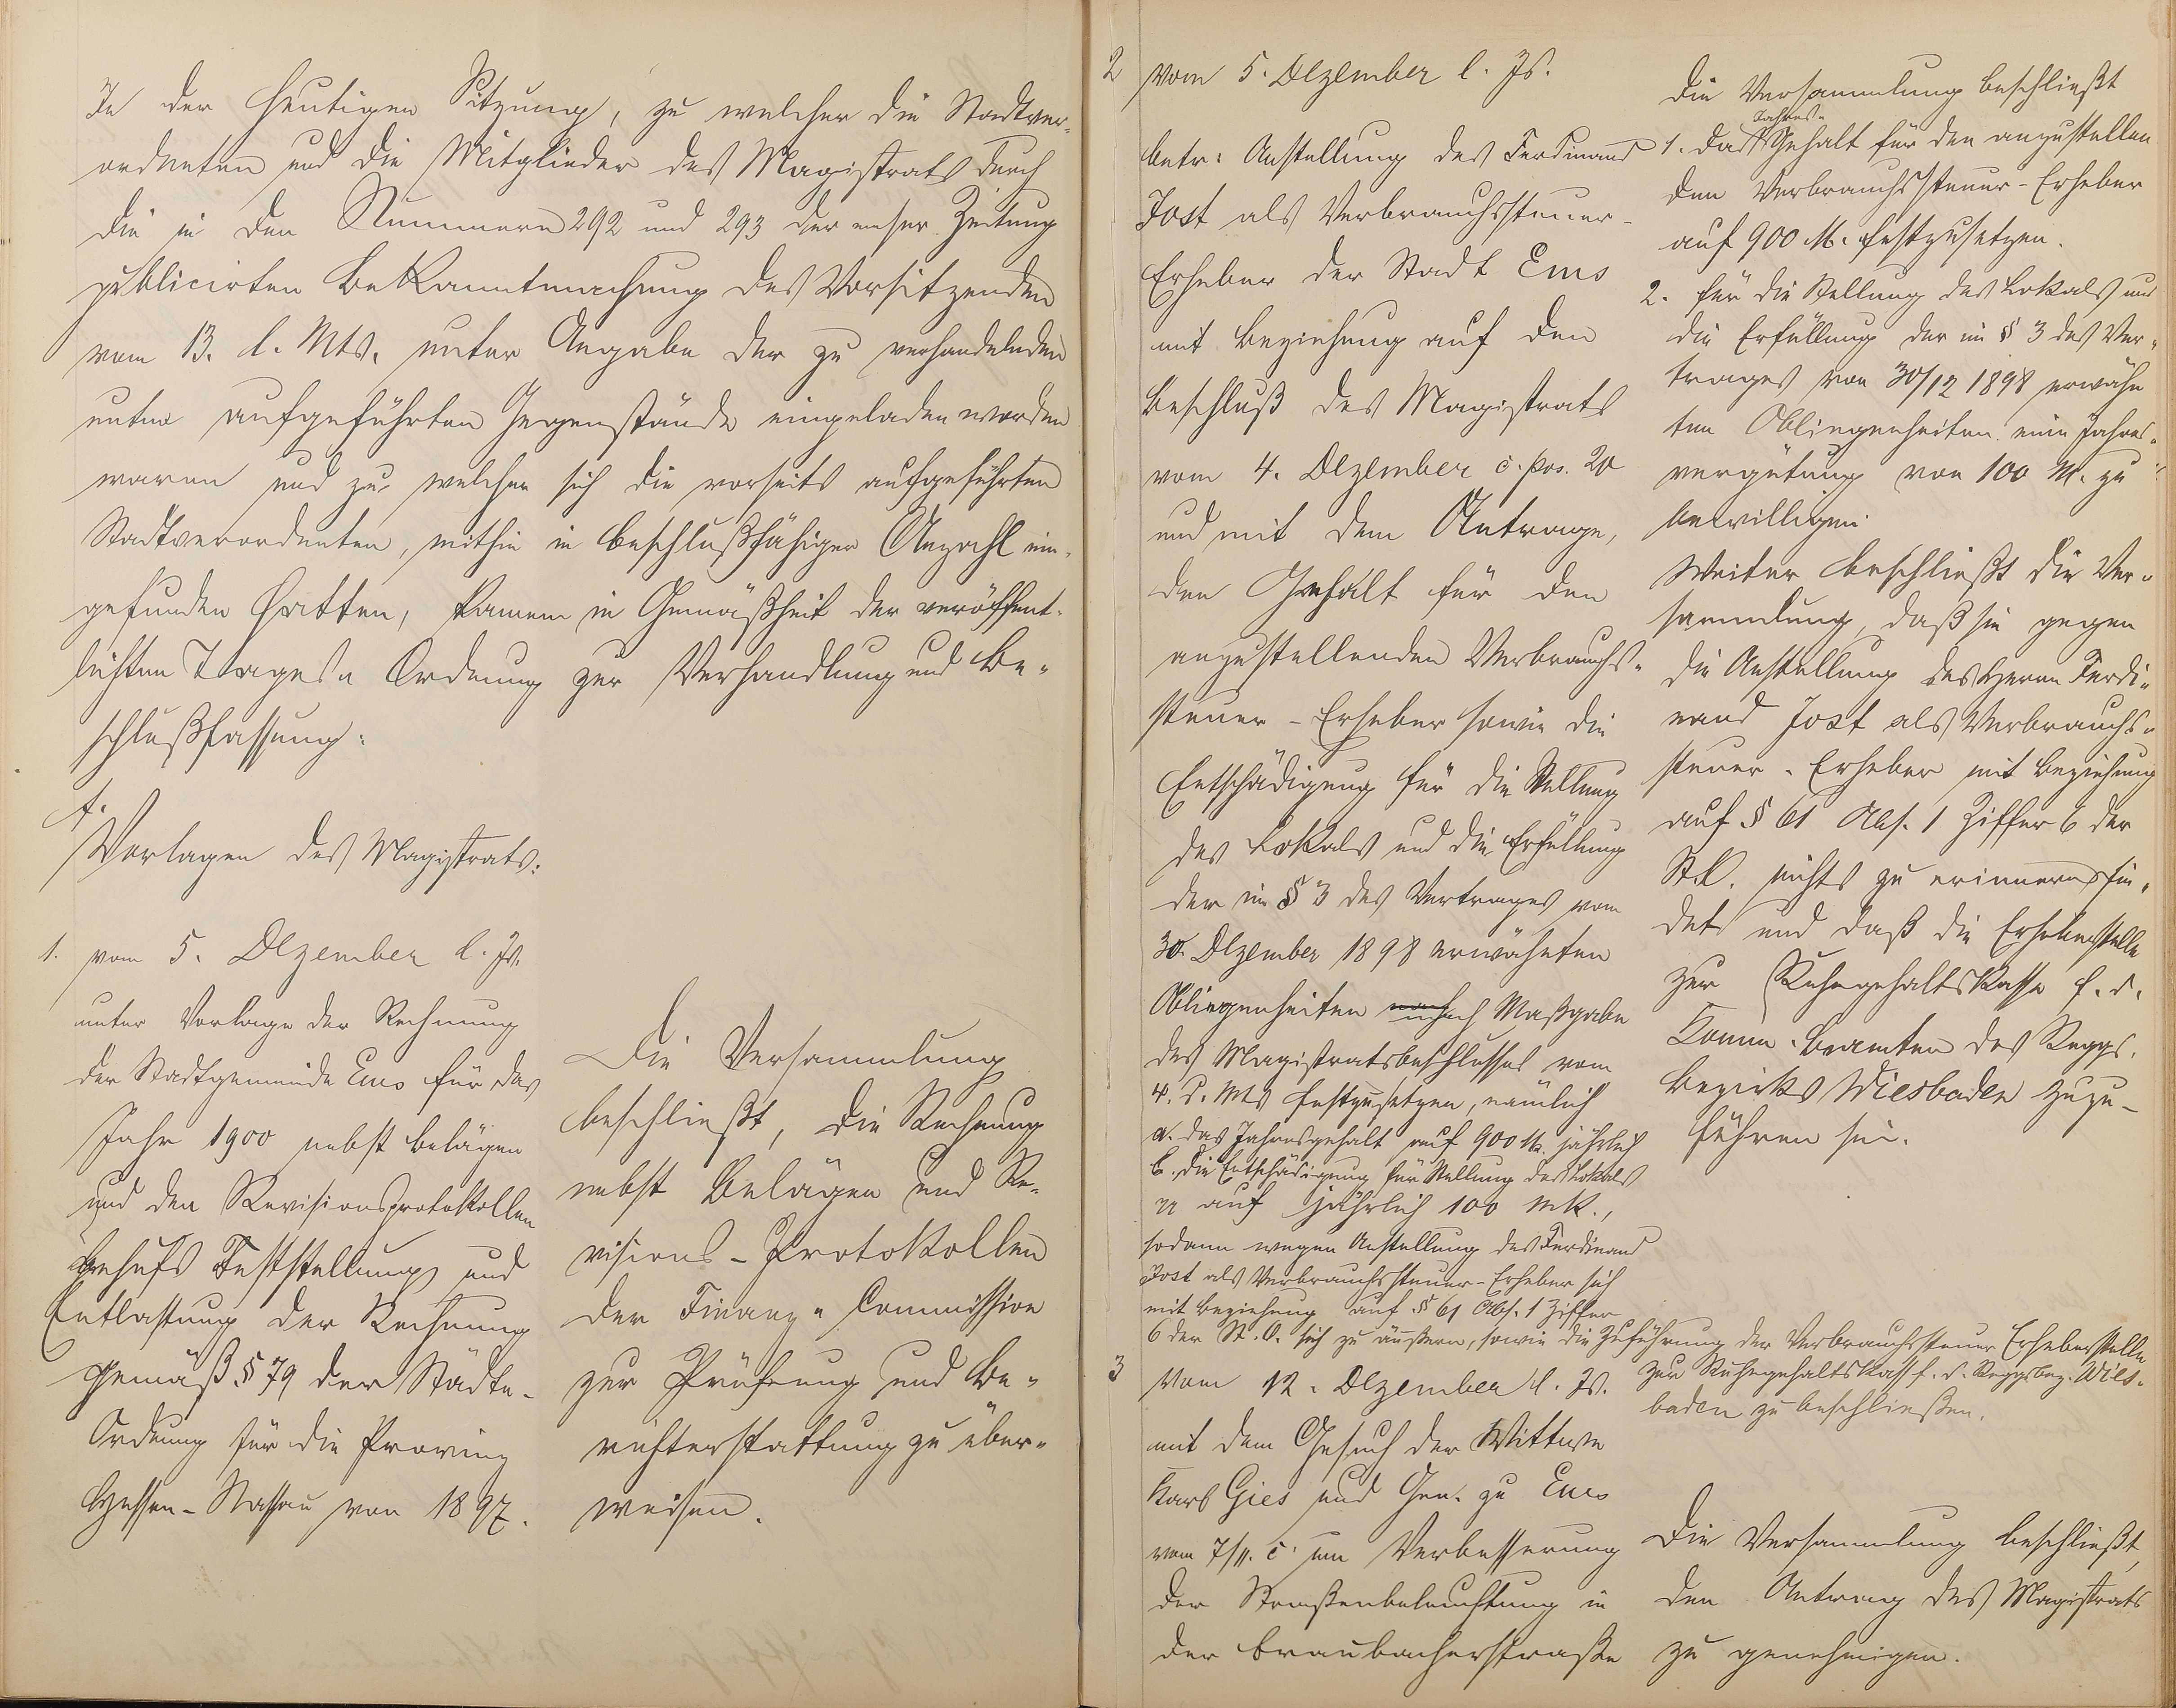 In der heutigen Sitzung, zu welcher die Stadtver-
ordneten und die Mitglieder des Magistrats durch
die in den Nummern 292 und 293 der Emser Zeitung
publicirten Bekanntmachung des Vorsitzenden
vom 13. l. Mts. unter Angabe der zu verhandelnden
unten aufgeführten Gegenstände eingeladen worden
waren und zu welcher sich die vorseits aufgeführten
Stadtverordneten, mithin in beschlußfähiger Anzahl ein-
gefunden hatten, kamen in Gemäßheit der veröffent-
lichten Tages-Ordnung zur Verhandlung und Be-
schlußfassung:
A.
Vorlagen des Magistrats:
1. vom 5. Dezember l. Js.
unter Vorlage der Rechnung
der Stadtgemeinde Ems für das
Jahr 1900 nebst Belägen
und den Revisionsprotokollen
behufs Feststellung und
Entlastung der Rechnung
gemäß § 79 der Städte-
Ordnung für die Provinz
Hessen-Nassau von 1897.
Die Versammlung
beschließt, die Rechnung
nebst Belägen und Re-
visions-Protokollen
der Finanz-Commission
zur Prüfung und Be-
richterstattung zu über-
weisen.
2 vom 5. Dezember l. Js.
betr: Anstellung des Ferdinand
Jost als Verbrauchssteuer-
Erheber der Stadt Ems
mit Beziehung auf den
Beschluß des Magistrats
vom 4. Dezember c. pos. 20
und mit dem Antrage,
den Gehalt für den
anzustellenden Verbrauchs-
steuer-Erheber sowie die
Entschädigung für die Stellung
des Lokals und die Erfüllung
der im § 3 des Vertrages vom
30. Dezember 1898 erwähnten
Obliegenheiten nach Maßgabe
des Magistratsbeschlusses vom
4. d. Mts festzusetzen, nämlich
a. das Jahresgehalt auf 900 M. jährlich
b. die Entschädigung für Stellung des Lokals
pp auf jährlich 100 Mk.,
sodann wegen Anstellung des Ferdinand
Jost als Verbrauchssteuer-Erheber sich
mit Beziehung auf § 61 Abs. 1 Ziffer
6 der St. O. sich zu äußern, sowie die Zuführung der Verbrauchssteuer Erheberstelle
zur Ruhegehaltskasse f. d. Reggsbez. Wies-
baden zu beschließen.
Die Versammlung beschließt
1. das Jahres-Gehalt für den anzustellen
den Verbrauchssteuer-Erheber
auf 900 M. festzusetzen.
2. für die Stellung des Lokals und
die Erfüllung der im § 3 des Ver-
trages von 30/12 1898 erwähn
ten Obliegenheiten eine Jahres-
vergütung von 100 M. zu
bewilligen.
Weiter beschließt die Ver-
sammlung, daß sie gegen
die Anstellung des Herrn Ferdi-
nand Jost als Verbrauchs-
steuer-Erheber mit Beziehung
auf § 61 Abs. 1 Ziffer 6 der
St.O. nichts zu erinnern fin-
det und daß die Erheberstelle
zur Ruhegehaltskasse f. d.
Komm. Beamten des Reggs.
Bezirks Wiesbaden zuzu-
führen sei.
3 vom 12. Dezember l. Js.
mit dem Gesuch der Wittwe
Karl Gies und Gen. zu Ems
vom 7/11. c. um Verbesserung
der Straßenbeleuchtung in
der Braubacherstraße
Die Versammlung beschließt,
den Antrag des Magistrats
zu genehmigen.